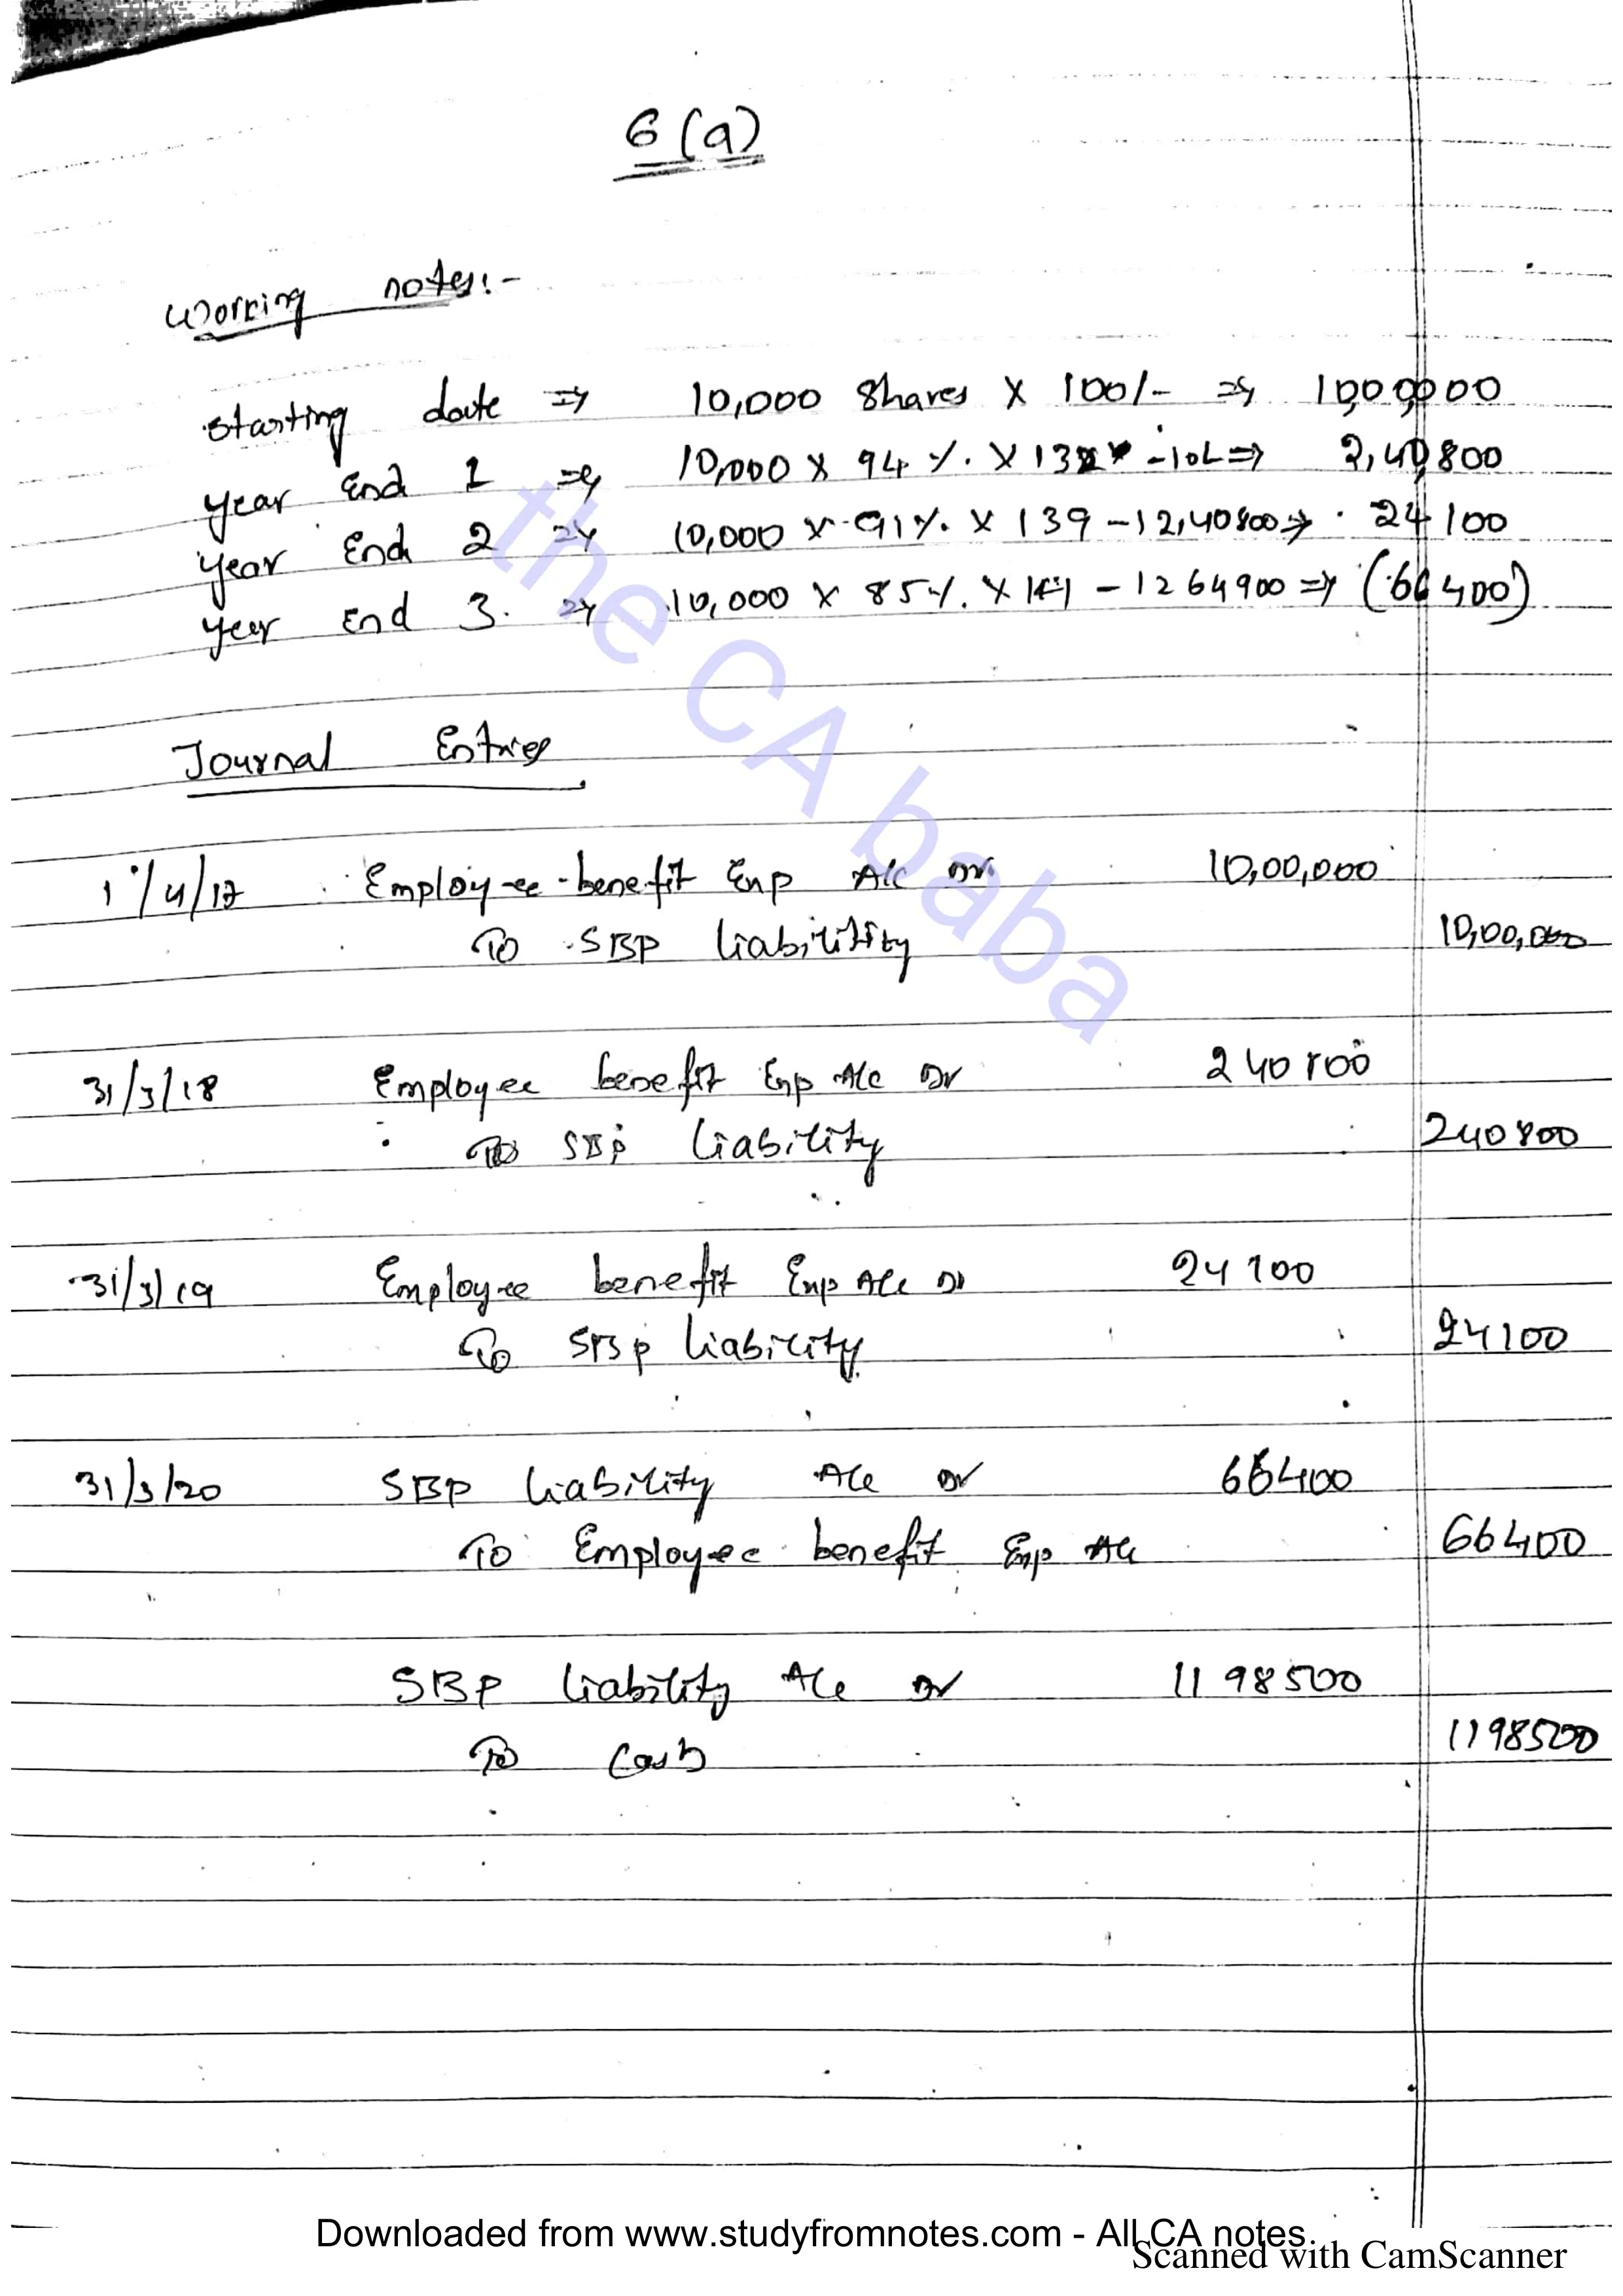 6 (a)
Working notes:-
Starting date ⇒ 10,000 Shares X 100/- ⇒ 10,00,000
year End 1 ⇒ 10,000 X 94 %. X 132 -10L ⇒ 2,40,800
year End 2 ⇒ 10,000 X 91%. X 139 - 12,40800 ⇒ 24100
year End 3. ⇒ 10,000 X 85%. X 141 - 1264900 ⇒ (66400)
Journal Entries
1/4/17 Employee benefit Exp A/c Dr 10,00,000
To SBP liability 10,00,000
31/3/18 Employee benefit Exp A/c Dr 240800
To SBP liability 240800
31/3/19 Employee benefit Exp A/c Dr 24100
To SBP liability 24100
31/3/20 SBP liability A/c Dr 66400
To Employee benefit Exp A/c 66400
SBP liability A/c Dr 1198500
To Cash 1198500
the CA baba
Downloaded from www.studyfromnotes.com - All CA notes
Scanned with CamScanner